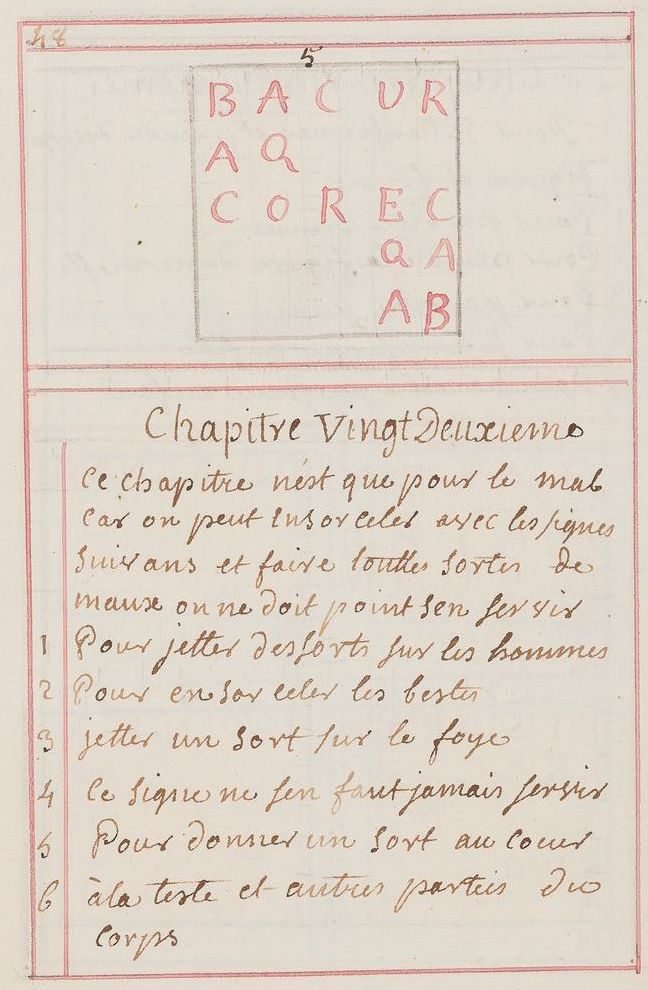 48
5
B A C U R
A Q
C O R E C
Q A
A B
Chapitre Vingt Deuxieme
Ce chapitre nést que pour le mal
Car on peut Ensorceler avec les signes
Suivans et faire touttes Sortes de
maux on ne doit point sen servir
1 Pour jetter des Sorts sur les hommes
2 Pour ensorceler les bestes
3 jetter un Sort sur le foye
4 Ce Signe ne sen faut jamais servir
5 Pour donner un Sort au Coeur
6 àla teste et autres parties du
Corps